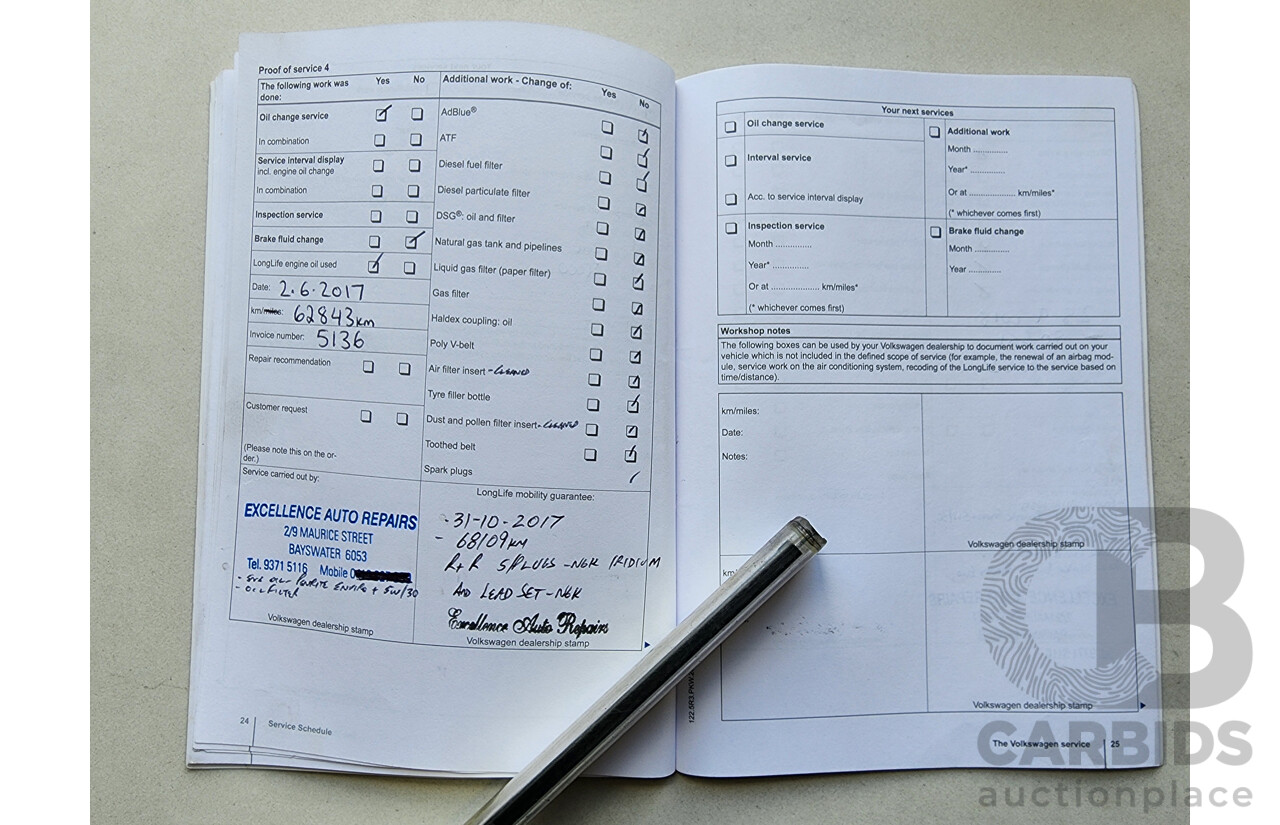 Proof of service 4
The following work was
done:
Yes
No
Oil change service
In combination
Service interval display
incl. engine oil change
In combination
Inspection service
Brake fluid change
LongLife engine oil used
Date: 2.6.2017
km/miles: 62843km
Invoice number: 5136
Repair recommendation
Customer request
(Please note this on the or-
der.)
Service carried out by:
EXCELLENCE AUTO REPAIRS
2/9 MAURICE STREET
BAYSWATER 6053
Tel. 9371 5116 Mobile 0
- OIL FILTER
Volkswagen dealership stamp
Additional work - Change of:
Yes
No
AdBlue®
ATF
Diesel fuel filter
Diesel particulate filter
DSG®: oil and filter
Natural gas tank and pipelines
Liquid gas filter (paper filter)
Gas filter
Haldex coupling: oil
Poly V-belt
Air filter insert - CLEANED
Tyre filler bottle
Dust and pollen filter insert - CLEANED
Toothed belt
Spark plugs
LongLife mobility guarantee:
- 31-10-2017
- 68109km
R+R S/PLUGS - NGK IRIDIUM
AND LEAD SET - NGK
Excellence Auto Repairs
Volkswagen dealership stamp
24
Service Schedule
Your next services
Oil change service
Interval service
Acc. to service interval display
Inspection service
Month ..............
Year* ..............
Or at ................... km/miles*
(* whichever comes first)
Additional work
Month .............
Year* .............
Or at .................. km/miles*
(* whichever comes first)
Brake fluid change
Month .............
Year ............
Workshop notes
The following boxes can be used by your Volkswagen dealership to document work carried out on your
vehicle which is not included in the defined scope of service (for example, the renewal of an airbag mod-
ule, service work on the air conditioning system, recoding of the LongLife service to the service based on
time/distance).
km/miles:
Date:
Notes:
Volkswagen dealership stamp
Volkswagen dealership stamp
The Volkswagen service
25
CB
CARBIDS
auctionplace